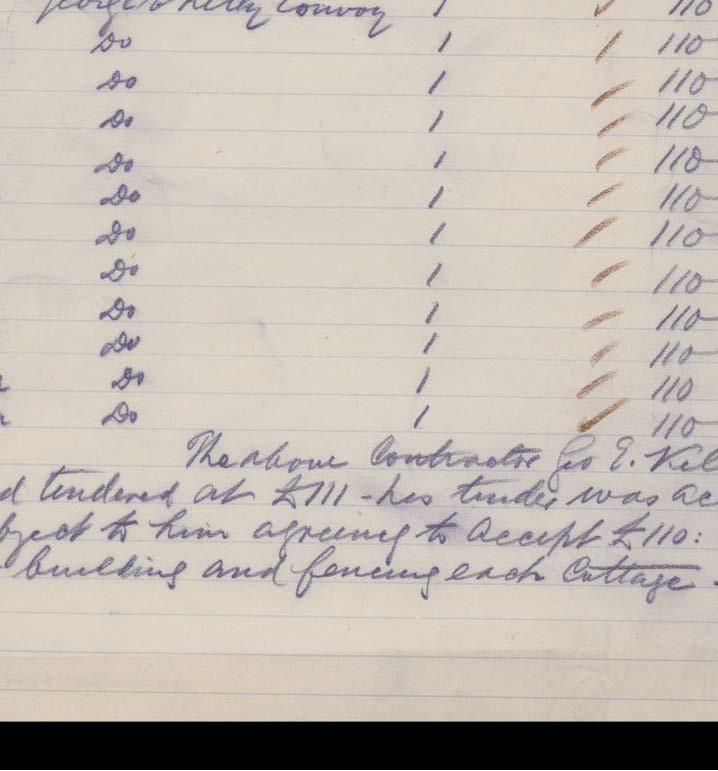 George E Kelly Convoy 1 110
Do 1 110
Do 1 110
Do 1 110
Do 1 110
Do 1 110
Do 1 110
Do 1 110
Do 1 110
Do 1 110
Do 1 110
Do 1 110
The above Contractor Geo E. Kel
d tendered at £111 - his tender was ac
bject to him agreeing to accept £110:
building and fencing each Cottage.